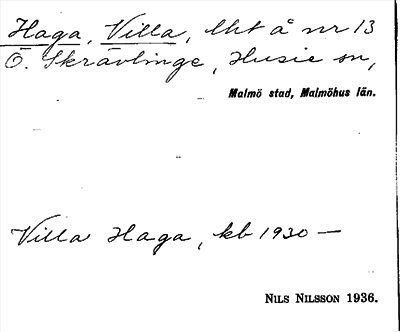 Haga, Villa, lht å nr 13
Ö. Skrävlinge, Husie sn,
Malmö stad, Malmöhus län.
Villa Haga, kb 1930 —
NILS NILSSON 1936.